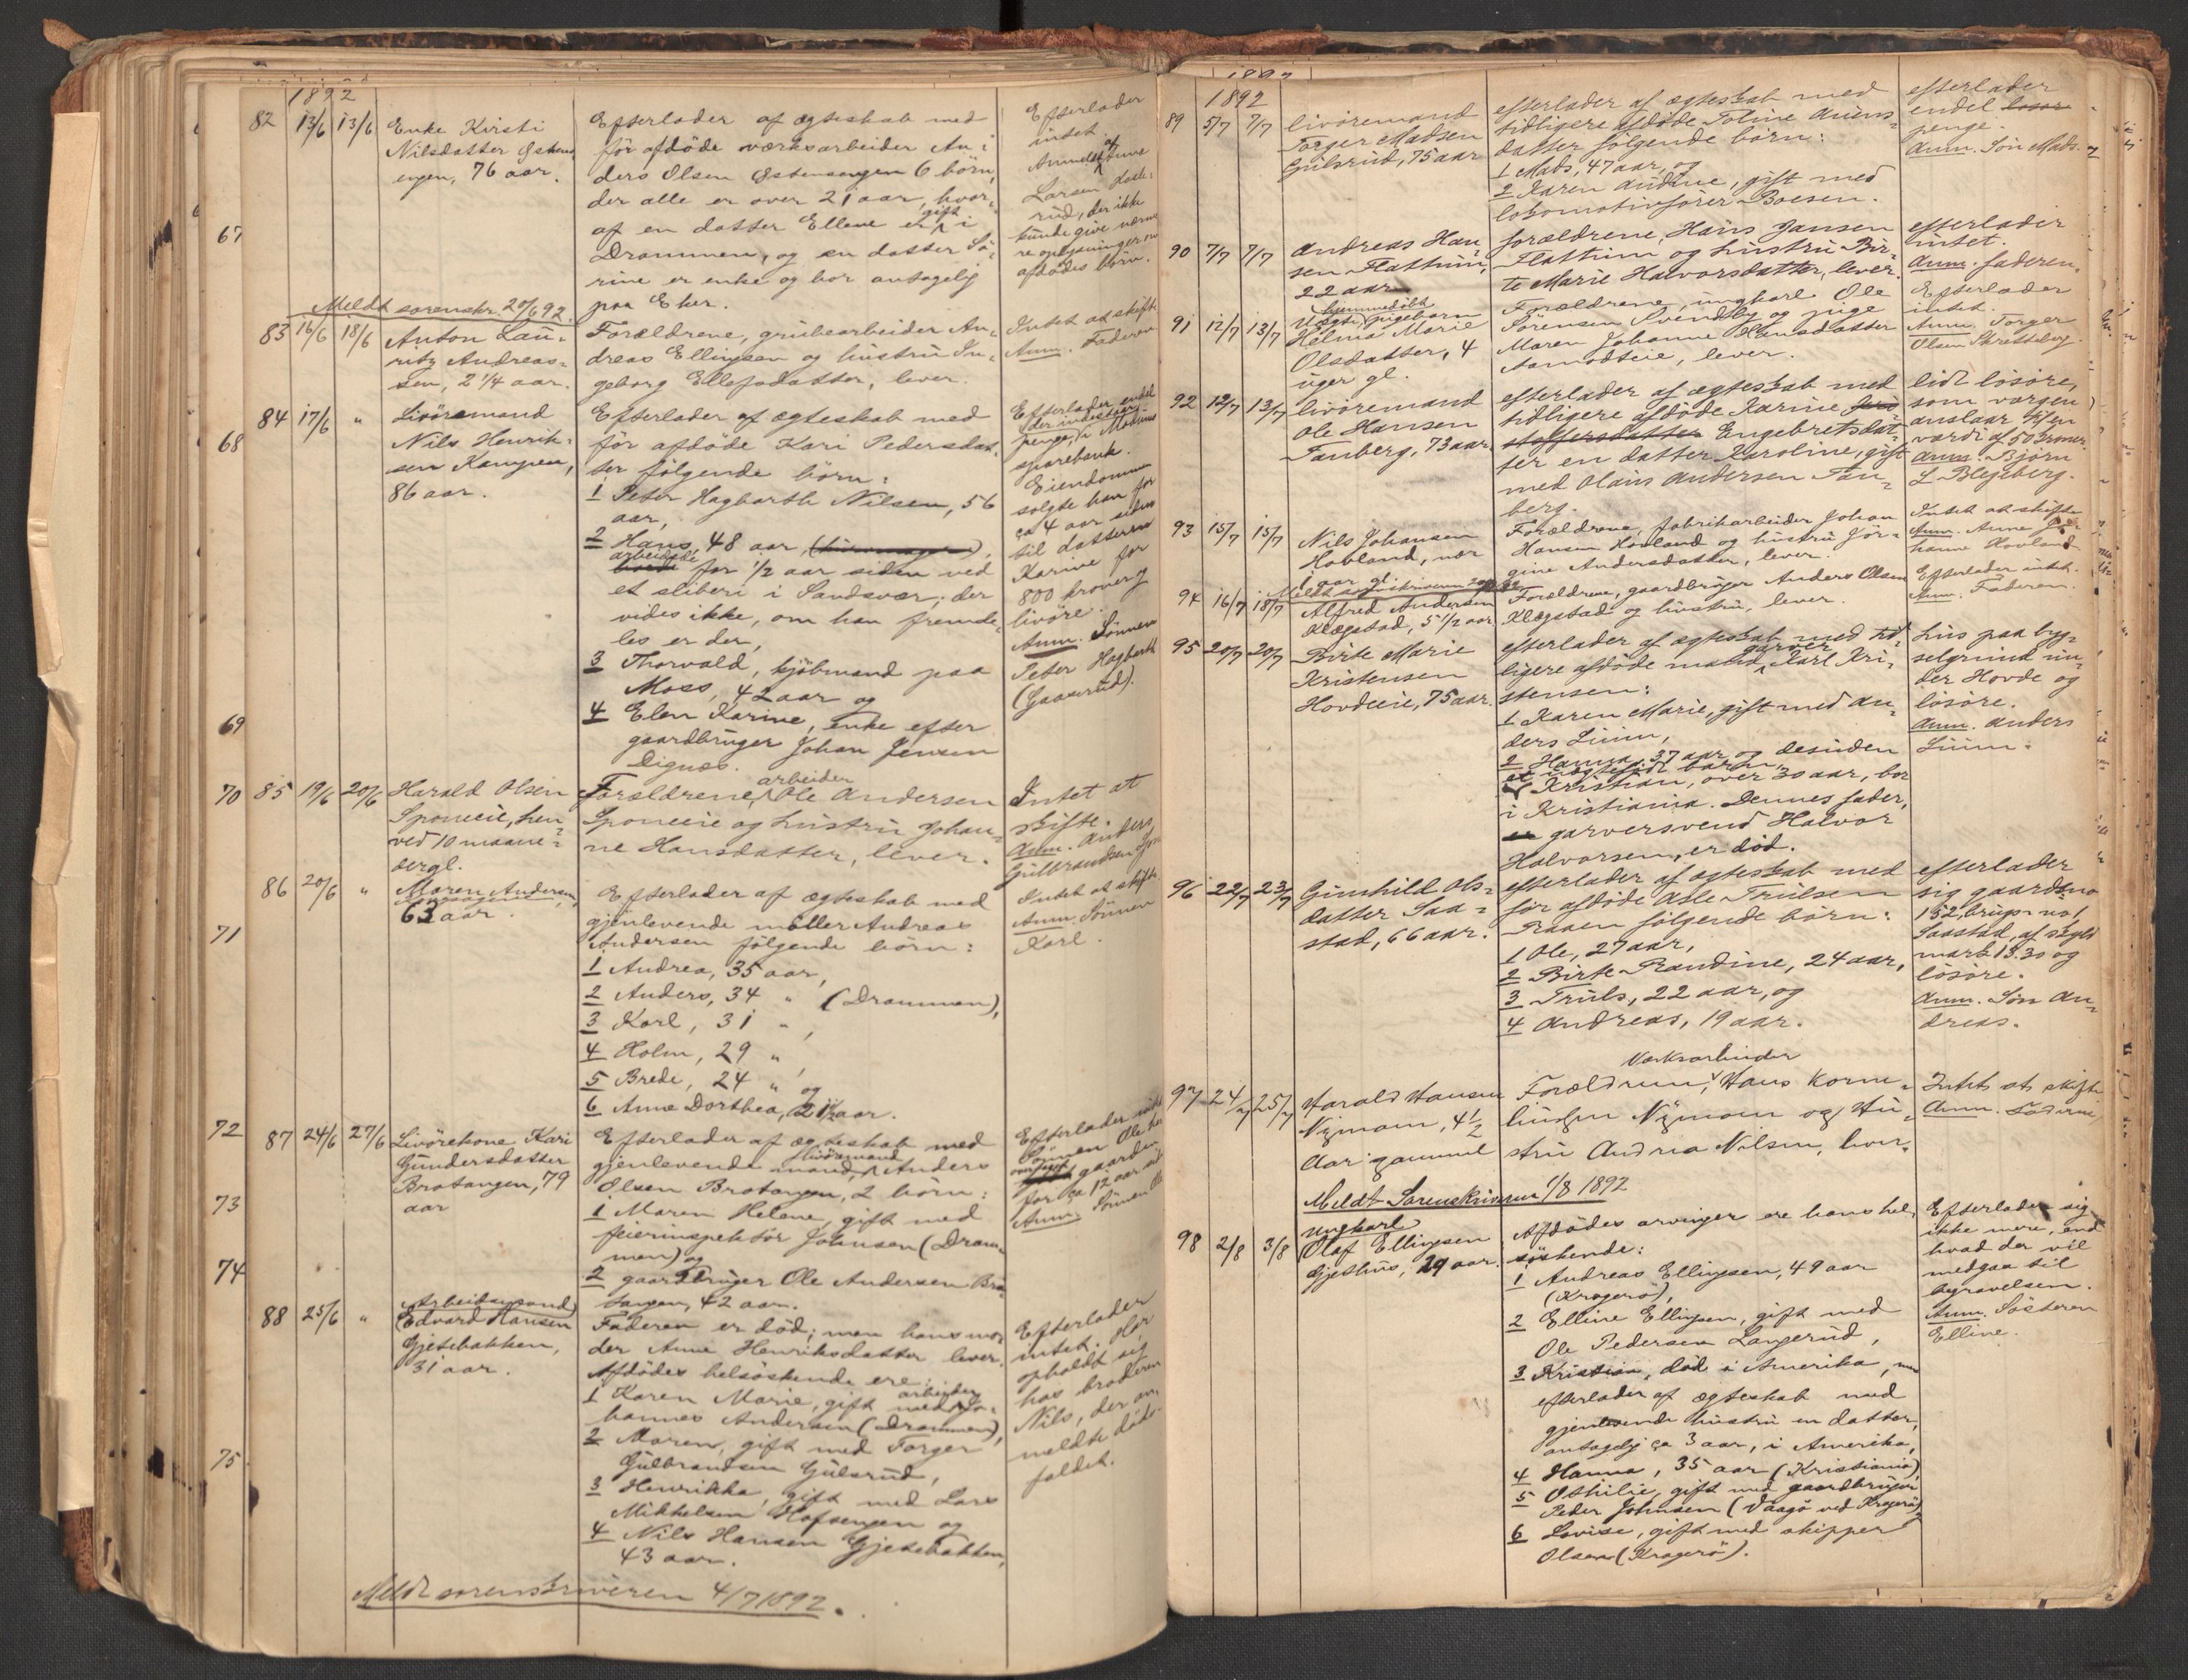 1892
82 13/6 13/6
Enke Kirsti
Nilsdatter Østens
engen, 76 aar.
Efterlader af ægteskab med
før afdöde værksarbeider An-
ders Olsen Østensengen 6 börn,
der alle er over 21 aar, hvor-
af en datter Ellene er gift i
Drammen, og en datter Sö-
rine er enke og bor antagelig
paa Eker.
Efterlader
intet.
Anmeldt af Anne
Larsen
rud, der ikke
kunde give nærme
re oplysninger om
afdödes börn.
67
Meldt sorenskr. 20/6 92.
83 16/6 18/6
Anton Lau-
ritz Andreas-
sen, 2 1/4 aar.
Forældrene, grubearbeider An-
dreas Ellingsen og hustru In-
geborg Ellefsdatter, lever.
Intet at skifte
Anm. Faderen
84 17/6 "
Livöremand
Nils Henrik-
sen Kampen,
86 aar.
Efterlader af ægteskab med
för afdöde Kari Pedersdat-
ter følgende börn:
1 Peter Hagbarth Nilsen, 56
aar,
2 Hans, 48 aar,
arbeidede for 1/2 aar siden ved
et sliberi i Sandsvær; der
vides ikke, om han fremde-
les er der,
3 Thorvald, kjöbmand paa
Moss, 42 aar og
4 Elen Karine, enke efter
gaardbruger Johan Jensen
Dignæs.
Efterlader endel
penge, der indestaar i Modums
sparebank.
Eiendommen
solgte han for
ca 4 aar siden
til datteren
Karine for
800 kroner og
livöre.
Anm. Sönnen
Peter Hagbarth
(Gaaserud).
68
69
70 85 19/6 20/6
Harald Olsen
Sponeeie, hen-
ved 10 maane-
der gl.
Forældrene, arbeider Ole Andersen
Sponeeie og hustru Johan-
ne Hansdatter, lever.
Intet at
skifte.
Anm. Anders
Gulbrandsen
86 20/6 "
Maren Andersen
63 aar.
Efterlader af ægteskab med
gjenlevende möller Andreas
Andersen følgende börn:
1 Andrea, 35 aar,
2 Anders, 34 " (Drammen),
3 Karl, 31 ",
4 Holm, 29 ",
5 Brede, 24 " og
6 Anne Dorthea, 21 1/2 aar.
Intet at skifte
Anm. Sönnen
Karl.
71
72 87 24/6 27/6
Livörekone Kari
Gundersdatter
Brotangen, 79
aar
Efterlader af ægteskab med
gjenlevende mand, livöremand Anders
Olsen Brotangen, 2 börn:
1 Maren Helene, gift med
feierinspektör Johnsen (Dram-
men) og
2 gaardbruger Ole Andersen Bro-
tangen, 42 aar.
Efterlader intet
Sönnen Ole har
overtaget gaarden
for ca 12 aar sid
Anm. Sönnen Ole
73
74
88 25/6 "
Arbeidsmand
Edvard Hansen
Gjetebakken,
31 aar.
Faderen er död; men hans mo-
der Anne Henriksdatter lever.
Afdödes helsöskende ere:
1 Karen Marie, gift med arbeider Jo-
hannes Andersen (Drammen),
2 Maren, gift med Torger
Gulbrandsen Gulsrud,
3 Henrikke, gift med Lars
Mikkelsen Hofsengen og
4 Nils Hansen Gjetebakken,
43 aar.
Efterlader
intet. Har
opholdt sig
hos broderen
Nils, der an-
meldte döds-
faldet.
75
Meldt sorenskriveren 4/7 1892.
1892
89 5/7 7/7
Livöremand
Torger Madsen
Gulsrud, 75 aar
efterlader af ægteskab med
tidligere afdöde Toline Auens-
datter fölgende börn:
1 Mads, 47 aar, og
2 Karen Audine, gift med
lokomotivförer Boesen.
efterlader
endel lösöre
penge.
Anm. Sön Mads.
90 7/7 7/7
Andreas Han-
sen Flattum,
22 aar
forældrene, Hans Jansen
Flattum og hustru Bir-
te Marie Halvorsdatter, lever.
efterlader
intet.
Anm. faderen.
91 12/7 13/7
Uægte, hjemmedöbt pigebarn
Helma Marie
Olsdatter, 4
uger gl.
Forældrene, ungkarl Ole
Sörensen Svendby og pige
Maren Johanne Hansdatter
Aamodteie, lever.
Efterlader
intet.
Anm. Torger
Olsen Skretteberg.
92 12/7 13/7
Livöremand
Ole Hansen
Tanberg, 73 aar
efterlader af ægteskab med
tidligere afdöde Karine Kris-
stoffersdatter Engebretsdat-
ter en datter Karoline, gift
med Olaus Andersen Tan-
berg.
lidt lösöre,
som vargen
anslaar til en
værdi af 50 kroner
Anm. Björn
L Blegeberg.
93 15/7 15/7
Nils Johansen
Hovland, nær
1 aar gl.
Forældrene, fabrikarbeider Johan
Hansen Hovland og hustru Jör-
gine Andersdatter, lever.
Intet at skifte
Anm. Anne Jo-
hanne Hovland
Meldt sorenskriveren
94 16/7 18/7
Alfred Andersen
Klægstad, 5 1/2 aar
Forældrene, gaardbruger Anders Olsen
Klægstad og hustru, lever.
Efterlader intet.
Anm. Faderen.
95 20/7 20/7
Birte Marie
Kristensen
Hovdeeie, 75 aar.
efterlader af ægteskab med tid-
ligere afdöde mand, garver Karl Kri-
stensen:
1 Karen Marie, gift med An-
ders Liium,
2 Hanna, 37 aar og desuden
et uægtefödt barn
Kristian, over 30 aar, bor
i Kristiania. Dennes fader,
garversvend Halvor
Halvorsen, er död.
hus paa byg-
selgrund un-
der Hovde og
lösöre.
Anm. Anders
Liium.
96 22/7 23/7
Gunhild Ols-
datter Saa-
stad, 66 aar.
efterlader af ægteskab med
för afdöde Asle Trulsen
Raaen fölgende börn:
1 Ole, 27 aar,
2 Birte Randine, 24 aar,
3 Truls, 22 aar, og
4 Andreas, 19 aar.
efterlader
sig gaards no
152, brugs no 1
Saastad, af skyld
mark 13.30 og
lösöre.
Anm. Sön An-
dreas.
97 24/7 25/7
Harald Hansen
Nymoen, 4 1/2
Aar gammel
Værksarbeider
Forældrene, Hans Korne-
liussen Nymoen og Hu-
stru Andrea Nilsen, lever.
Intet at skifte
Anm. Faderen
Meldt Sorenskriveren 1/8 1892
98 2/8 3/8
Ungkarl
Olaf Ellingsen
Gjethus, 29 aar.
Afdödes arvinger ere hans hel-
söskende:
1 Andreas Ellingsen, 49 aar
(Kragerö),
2 Elline Ellingsen, gift med
Ole Pedersen Langerud,
3 Kristian, död i Amerika, men
efterlader af ægteskab med
gjenlevende hustru en datter,
antagelig ca 3 aar, i Amerika,
4 Hanna, 35 aar (Kristiania)
5 Othilie, gift med gaardbruger
Peder Johnsen (Vaagö ved Kragerö)
6 Lovise, gift med skipper
Olsen (Kragerö).
Efterlader sig
ikke mere, end
hvad der vil
medgaa til
begravelsen.
Anm. Sösteren
Elline.